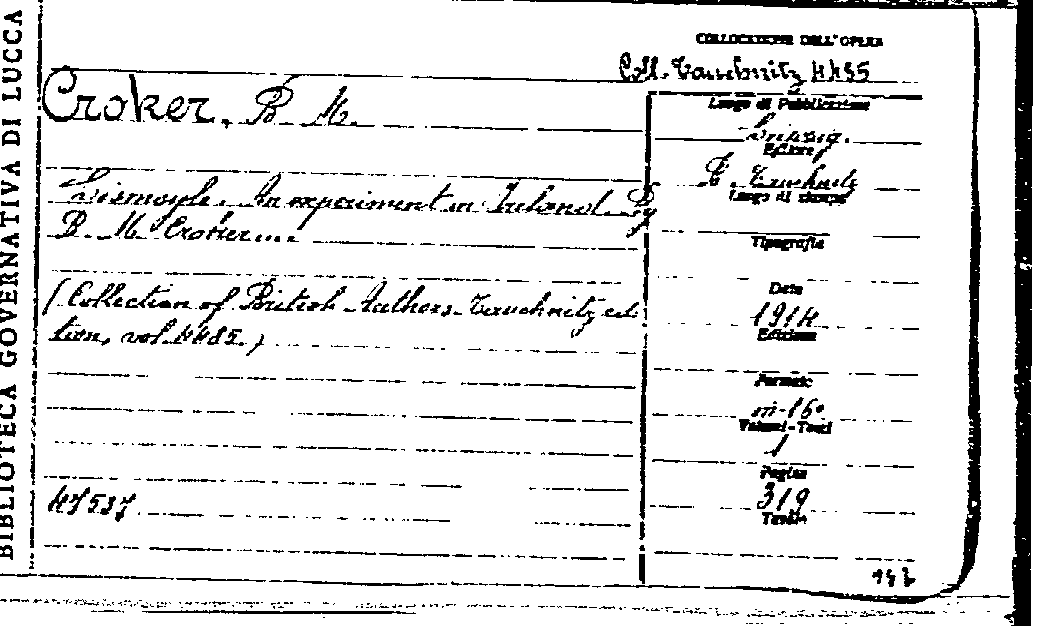 BIBLIOTECA GOVERNATIVA DI LUCCA
COLLOCAZIONE DELL'OPERA
Coll. Tauchnitz 4485
Croker, B. M.
Luogo di Pubblicazione
Leipzig.
Editore
B. Tauchnitz
Luogo di stampa
Lismoyle. An experiment in Ireland. By
B. M. Croker...
Tipografia
Data
1914
(Collection of British Authors. Tauchnitz edi
tion, vol. 4485.)
Edizione
Formato
in-16°
Volumi-Tomi
1
Pagine
319
Tavole
47537